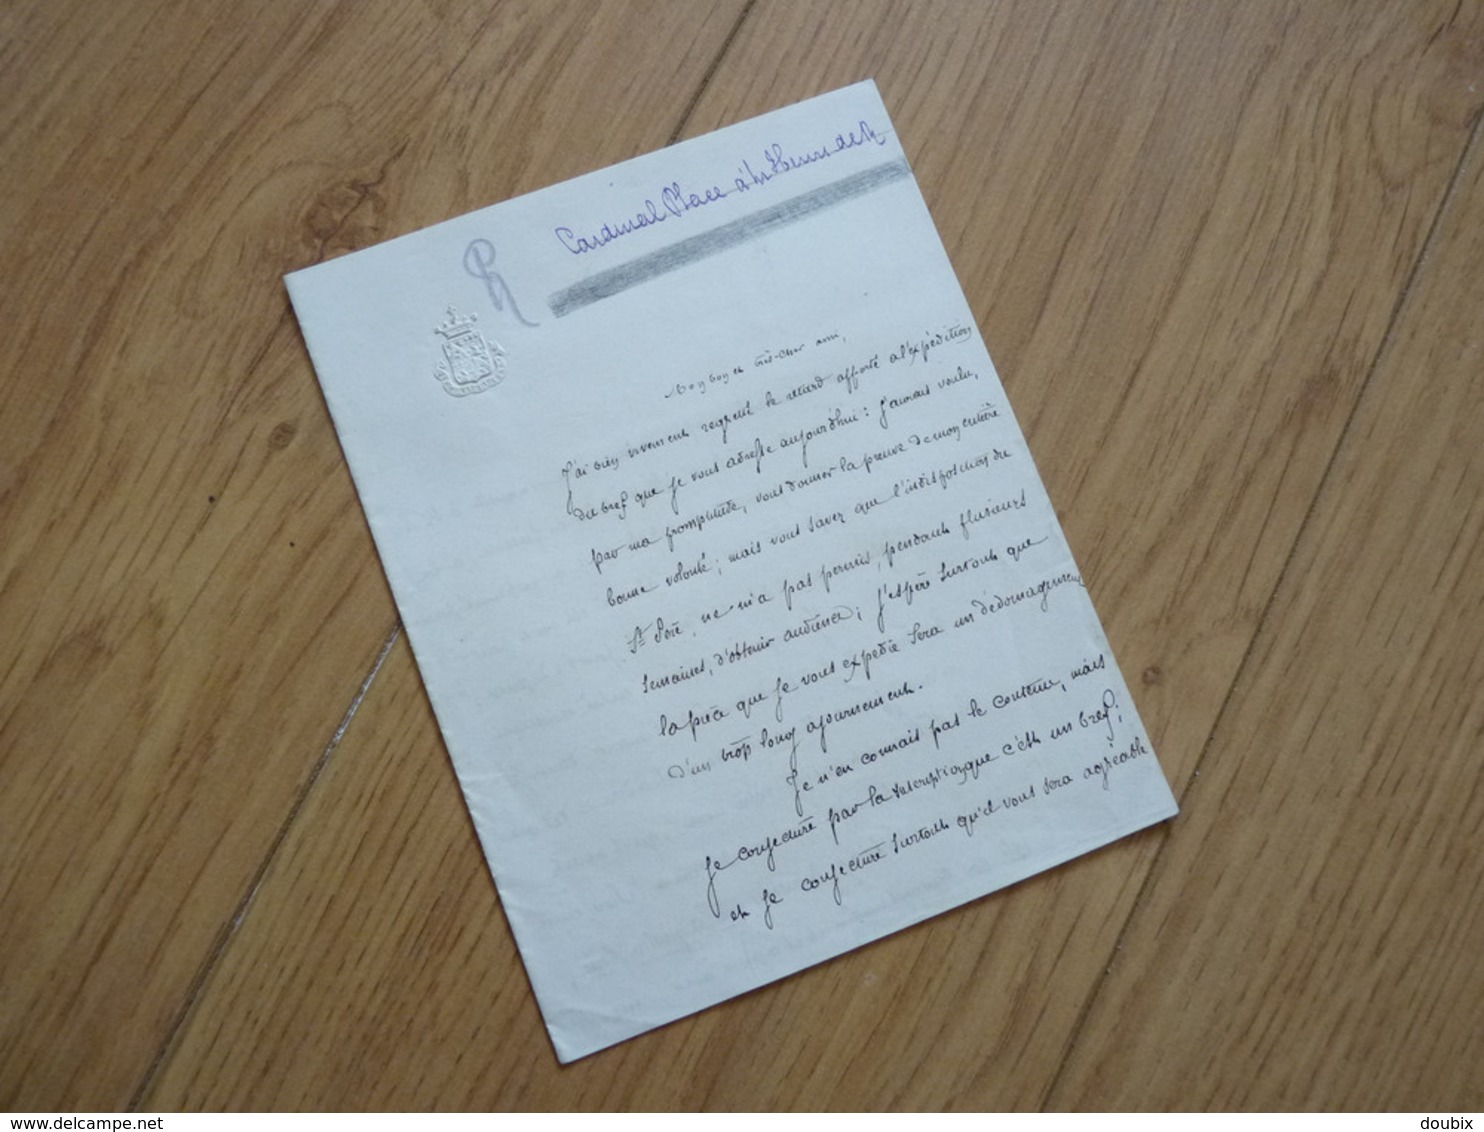 Cardinal Place à Mr Henri de R
Mon bon et très-cher ami,
J'ai bien vivement regretté le retard apporté à l'expédition
du bref que je vous adresse aujourd'hui : j'aurais voulu,
par ma promptitude, vous donner la preuve de mon entière
bonne volonté ; mais vous savez que l'indisposition du
St Père, ne m'a pas permis, pendant plusieurs
semaines, d'obtenir audience ; j'espère surtout que
la pièce que je vous expédie sera un dédomagement
d'un trop long ajournement.
Je n'en connais pas le contenu, mais
je conjecture par la suscription que c'est un bref ;
et je conjecture surtout qu'il vous sera agréable
www.delcampe.net
doubix